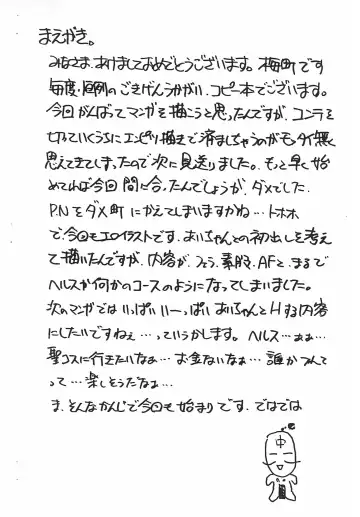 まえがき。
みなさま、あけましておめでとうございます。梅町です
毎度、恒例のごきげんうかがい、コピー本でございます。
今回がんばってマンガを描こうと思ったんですが、コンテを
切っていくうちにエンピツ描きで済ましちゃうのがモッタイ無く
思えてきてしまったので次に見送りました。もっと早く始
めてれば今回間に合ったんでしょうが、ダメでした
P.NをダメFF町にかえてしまいますかね…トホホ
で、今回もエロイラストです、あいちゃんとの初出しを考え
て描いたんですが、内容が、フェラ、素股、AFと、まるで
ヘルスか何かのコースのようになってしまいました。
次のマンガではいっぱいいーっぱいあいちゃんとHする内容
にしたいですねぇ…っていうかします。ヘルス…ああ…
聖コスに行きたいなぁ…お金ないなぁ…誰かつれて
って…楽しそうだなぁ…
ま、そんなかんじで今回も始まりです、ではでは
中